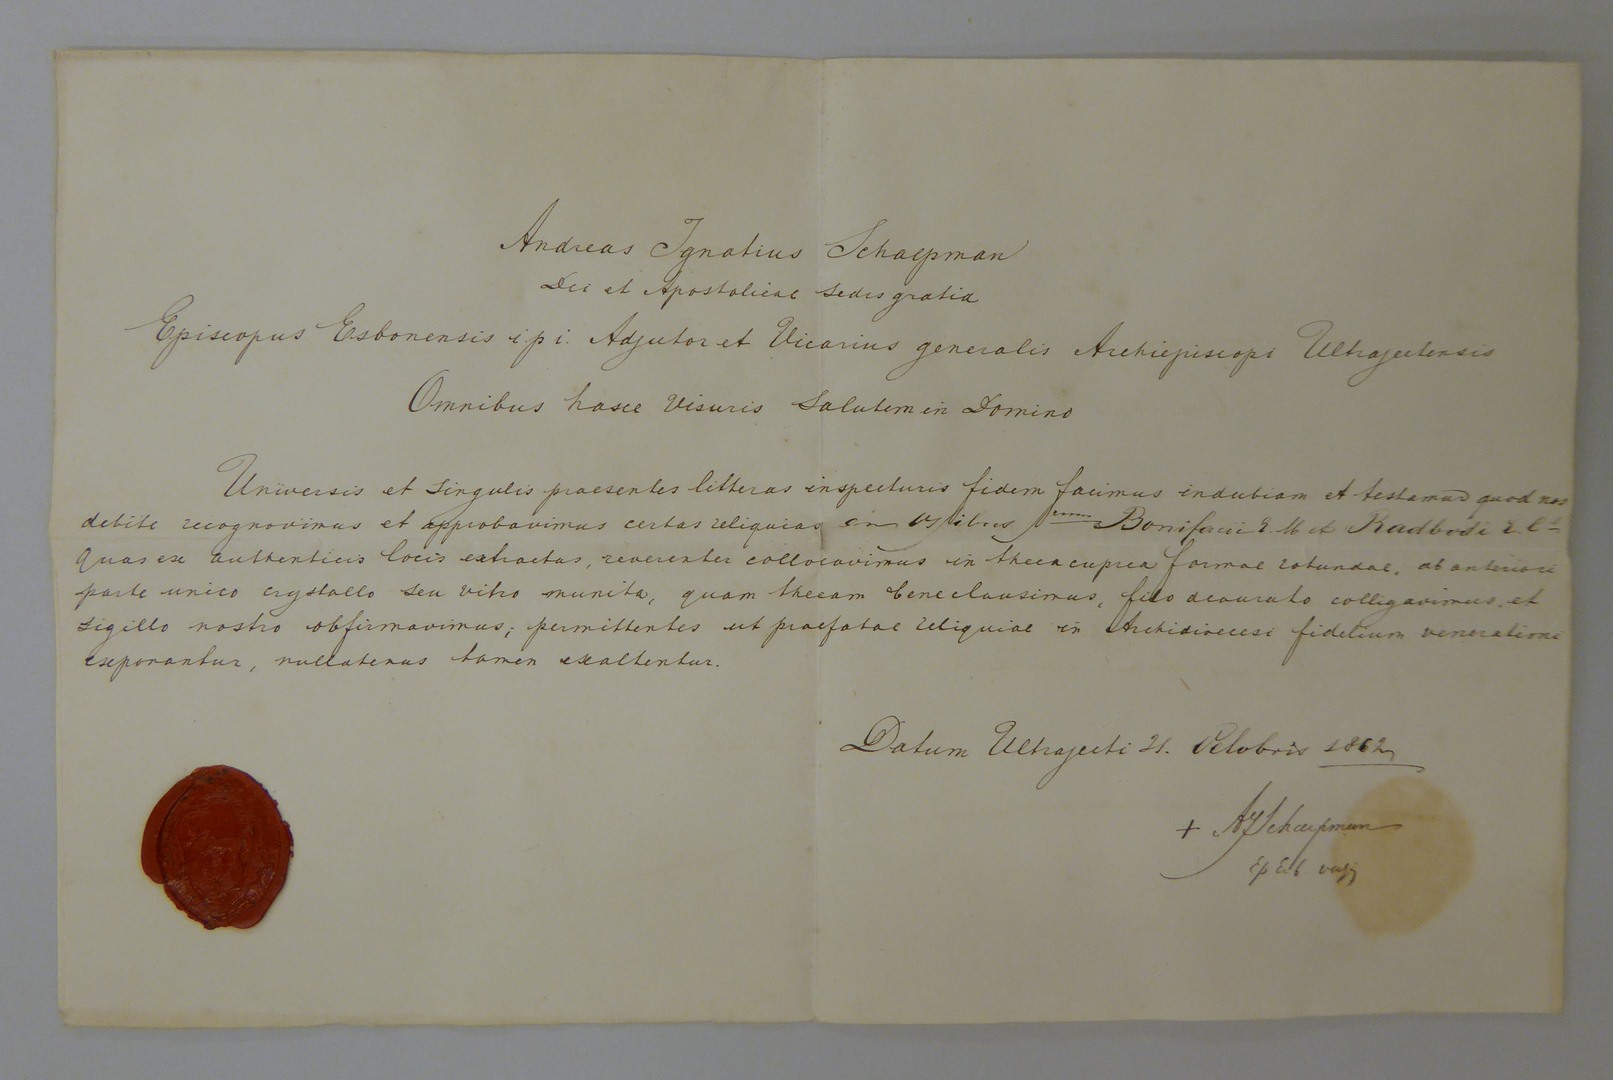 Andreas Ignatius Schaepman
Dei et Apostolicae sedis gratia
Episcopus Esbonensis i p i. Adjutor et Vicarius generalis Archiepiscopi Ultrajectensis
Omnibus hasce Visuris Salutem in Domino
Universis et singulis praesentes litteras inspecturis fidem facimus indubiam et testamur quod nos
debite recognovimus et approbavimus certas reliquias ex ossibus Bonifacii E. M. et Radbodi E. C.
quas ex authenticis locis extractas, reverenter collocavimus in theca cuprea formae rotundae, ab anteriori
parte unico crystallo seu vitro munita, quam thecam bene clausimus, filo deaurato colligavimus, et
sigillo nostro obfirmavimus; permittentes ut praefatae reliquiae in Archidioecesi fidelium venerationi
exponantur, nullatenus tamen exaltentur.
Datum Ultrajecti 21. Octobris 1862
+ A J Schaepman
Ep Esb.